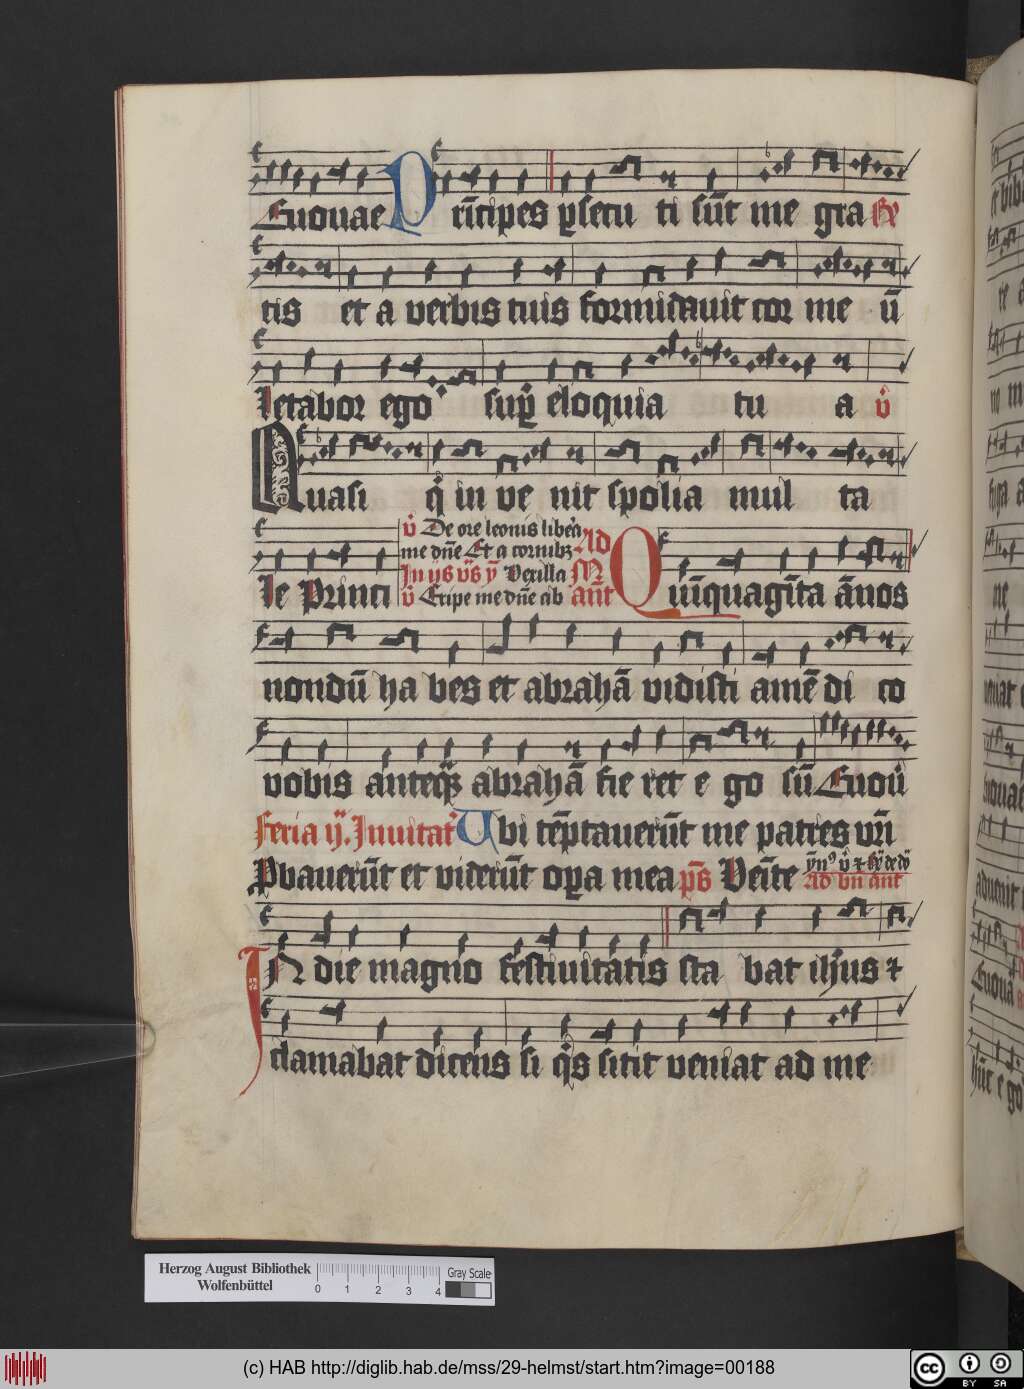 Euouae Prīcipes ꝑsecu ti sūt me gra R̄
tis et a verbis tuis formidauit cor me ū
letabor ego suꝑ eloquia tu a v̄
Quasi q̄ in ve nit spolia mul ta
Je Princi
v̄ De ore leonis libera
me dn̄e Et a cornibꝫ
Vexilla
v̄ Eripe me dn̄e ab
Ad
M̄
ant̄
Quīquagīta ānos
nondū ha bes et abrahā vidisti amē di co
vobis anteqꝫ abrahā fie ret e go sū Euou
feria ij. Inuitat Ubi tēptauerūt me patres vr̄i
Ꝓbauerūt et viderūt oꝑa mea ps̄ Veīte
Ad bn̄ ant̄
In die magno festiuitatis sta bat ihūs ⁊
clamabat dicens si q̄s sitit veniat ad me
Herzog August Bibliothek
Wolfenbüttel
0 1 2 3 4
Gray Scale
(c) HAB http://diglib.hab.de/mss/29-helmst/start.htm?image=00188
cc BY SA